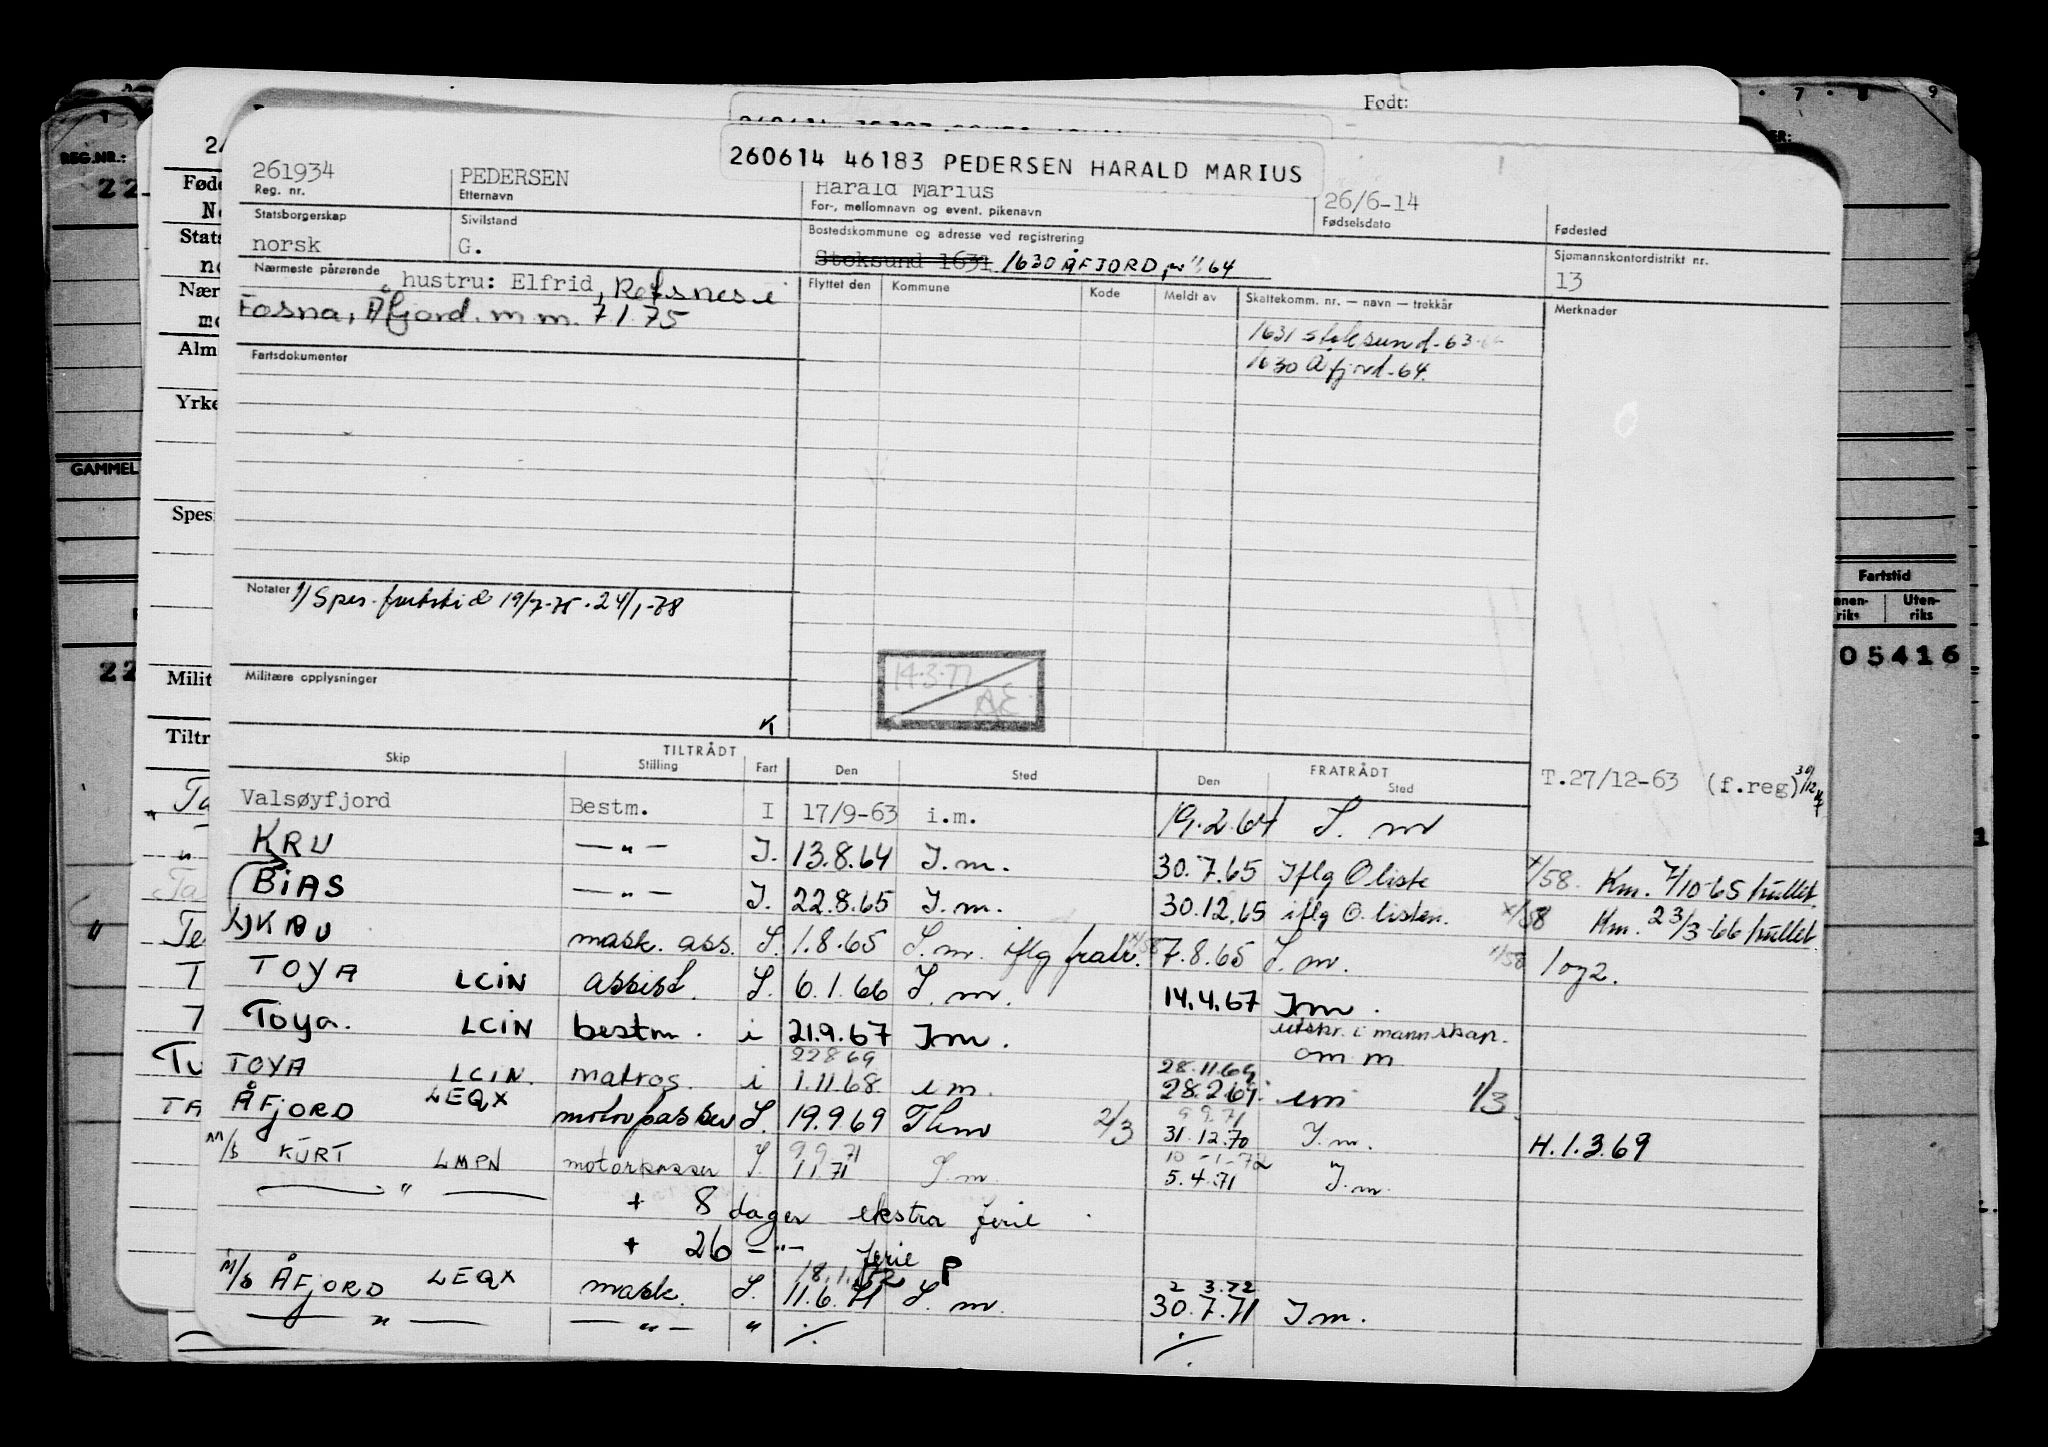 Født:
· 7 · 8 9
REG.NR.:
260614 46183 PEDERSEN HARALD MARIUS
261934 PEDERSEN Harald Marius 26/6-14
Reg. nr. Etternavn For-, mellomnavn og event. pikenavn Fødselsdato Fødested
Statsborgerskap Sivilstand Bostedskommune og adresse ved registrering Sjømannskontordistrikt nr.
norsk G. Stoksund 1631 1630 ÅFJORD, 64 13
Nærmeste pårørende hustru: Elfrid, Refsnes i
Fosna, Åfjord. m m. 7.1.75
Flyttet den Kommune Kode Meldt av Skattekomm. nr. — navn — trekkår Merknader
1631 stoksund-63
1630 Åfjord-64.
Fartsdokumenter
Yrke
GAMMEL
Spes
Fartstid
Uten-
riks
05416
Notater 1/ Spes. fartstid 19/7-75 - 24/1-78
Milit
Militære opplysninger
14.3.77
AE
K
Tiltr
TILTRÅDT FRATRÅDT
Skip Stilling Fart Den Sted Den Sted
T.27/12-63 (f.reg)
Valsøyfjord Bestm. I 17/9-63 i.m. 19.2.64 S. m
KRU — " — I. 13.8.64 I.m. 30.7.65 Iflg O liste x/58. Km. 7/10-65 hullet.
BiAS — " — I. 22.8.65 I.m. 30.12.65 iflg O. listen. x/58 Km. 23/3-66 hullet.
KRU mask. ass. S. 1.8.65 S.m. iflg fratr. x/58 7.8.65 S.m. x/58 1 og 2.
TOYA LCIN assist. S. 6.1.66 S.m. 14.4.67 I.m.
Toya. LCiN bestm. i 21.9.67 I.m. utskr. i mannskap.
om m
22 8 69 28.11.69
TOYA LCIN. matros. i 1.11.68 i m. 28.2.69. i m 1/3.
ÅFjORD LEQX motorpasser S. 19.9.69 T hm 2/3 31.12.70 I.m. H.1.3.69
9.9.71
M/S KURT LMPN motorpasser S. 1.1.71 S.m. 5.4.71 I.m.
9.9.71 10-1-72
— " — + 8 dager ekstra ferie
+ 26 — " — ferie
18.1.72 P 2 3.72
M/S ÅFjORD LEQX mask. S. 11.6.71 S.m. 30.7.71 I.m.
— " — — " — " ./. ./.